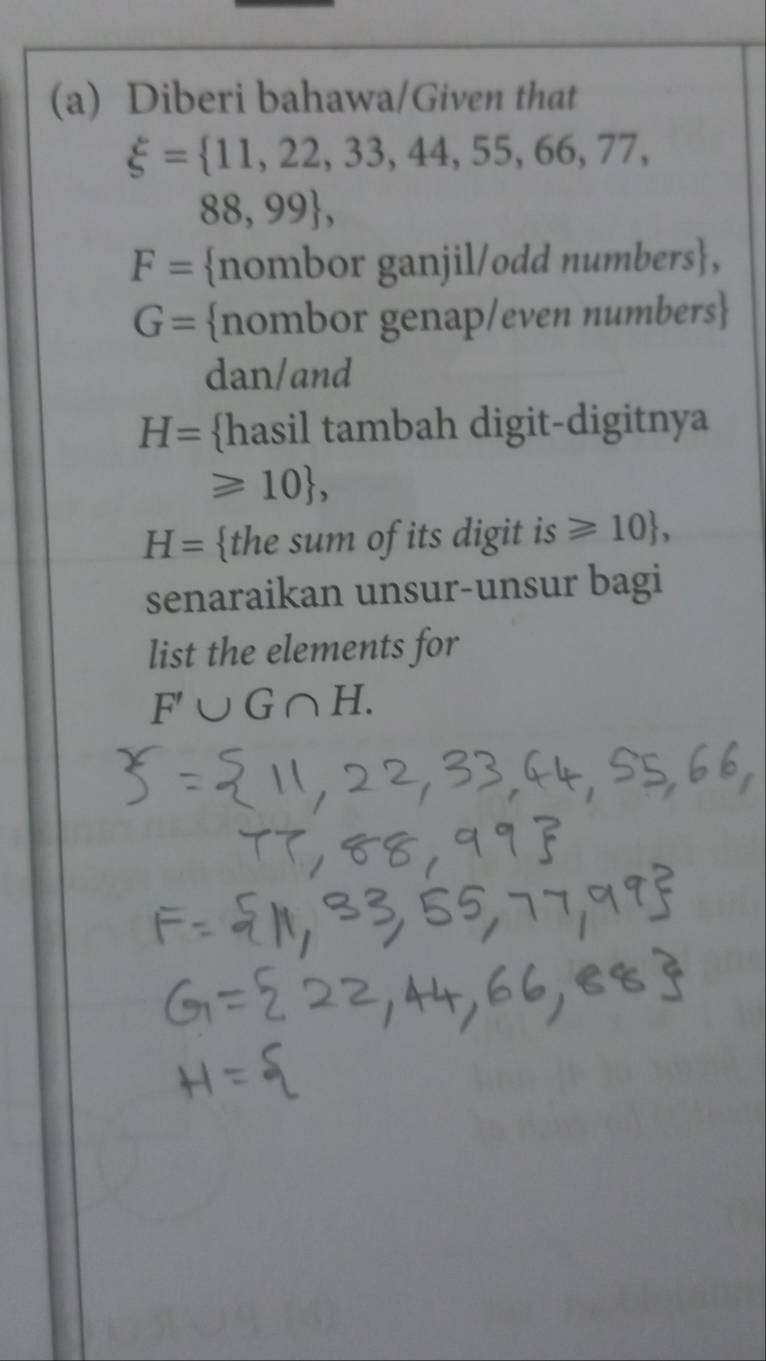 (a) Diberi bahawa/Given that
ξ = {11, 22, 33, 44, 55, 66, 77,
88, 99},
F = {nombor ganjil/odd numbers},
G = {nombor genap/even numbers}
dan/and
H = {hasil tambah digit-digitnya
⩾ 10},
H = {the sum of its digit is ⩾ 10},
senaraikan unsur-unsur bagi
list the elements for
F′ ∪ G ∩ H.
ξ = {11, 22, 33, 44, 55, 66,
77, 88, 99}
F = {11, 33, 55, 77, 99}
G = {22, 44, 66, 88}
H = {